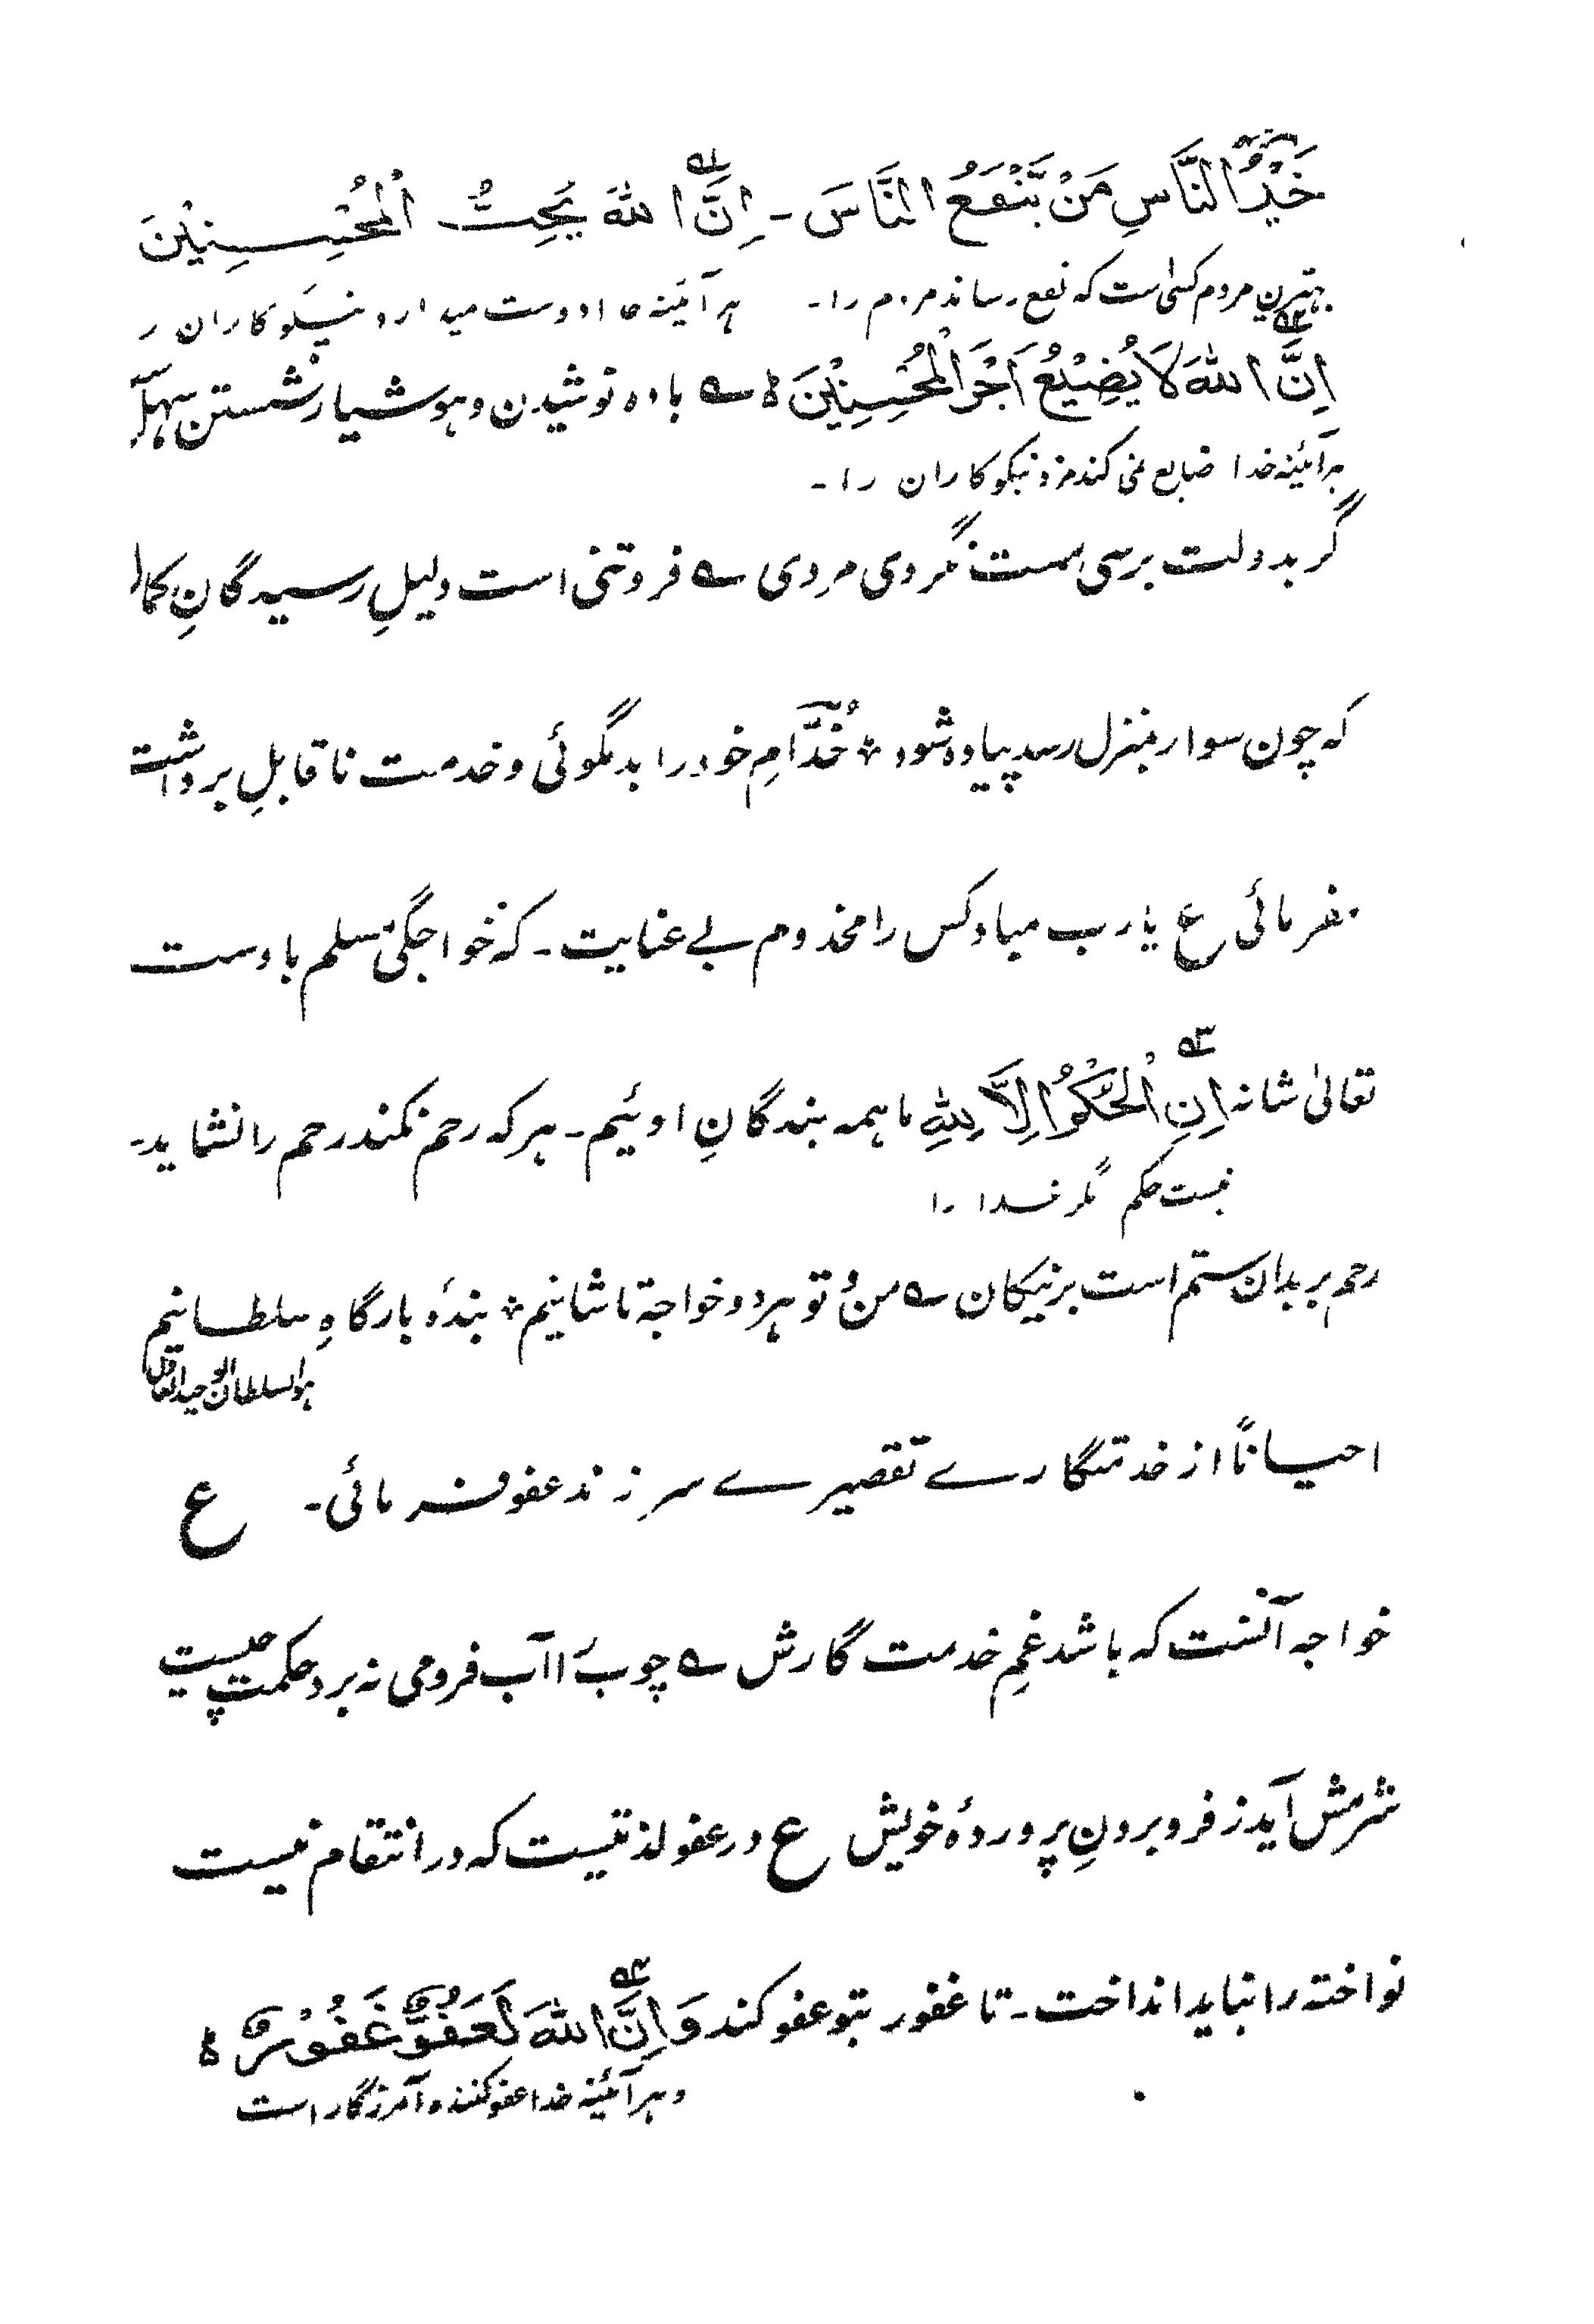 خَيْرُ النَّاسِ مَنْ يَّنْفَعُ النَّاسَ ۔ اِنَّ اللهَ يُحِبُّ الْمُحْسِنِيْنَ
بهترین مردم کسی است که نفع رساند مردم را۔ هر آئینه خدا دوست میدارد نیکو کاران را
اِنَّ اللهَ لَا يُضِيْعُ اَجْرَ الْمُحْسِنِيْنَ ه ے باده نوشیدن و هوشیار نشستن سهل است
هر آئینه خدا ضایع نمی کند مزد نیکو کاران را۔
گر بدولت برسی مست نگردی مردی ے فروتنی است دلیلِ رسیدگانِ کمال
که چون سوار بمنزل رسد پیاده شود ؞ خُدَّامِ خود را بدگوئی و خدمت ناقابلِ برداشت
نفرمائی ع یا رب مباد کس را مخدوم بے عنایت۔ که خواجگی مسلم باوست
تعالیٰ شانه اِنِ الْحُكْمُ اِلَّا لِلّٰهِ ما همه بندگانِ اوئیم۔ هر که رحم نکند رحم را نشاید۔
نیست حکم مگر خدا را
رحم بر بدان ستم است بر نیکان ے من و تو هر دو خواجه تاشانیم ؞ بندۀ بارگاهِ سلطانیم
هو السلطان الوحید العادل
احیاناً از خدمتگارے تقصیرے سر زند عفو فرمائی۔ ع
خواجه آنست که باشد غمِ خدمت گارش ے چوب را آب فرو می نه برد حکمت چیست
شرمش آید ز فرو بردنِ پروردۀ خویش ع در عفو لذتیست که در انتقام نیست
نواخته را نباید انداخت۔ تا غفور بتو عفو کند وَ اِنَّ اللهَ لَعَفُوٌّ غَفُوْرٌ ه
و هر آئینه خدا عفو کننده آمرزگار است